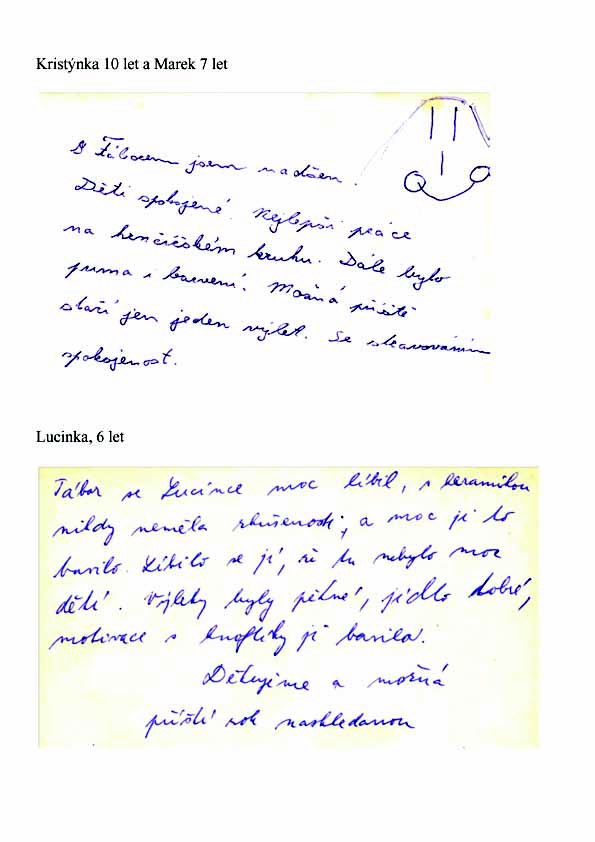 Kristýnka 10 let a Marek 7 let
S Táborem jsem nadšen.
Děti spokojené. Nejlepší práce
na hrnčířském kruhu. Dále bylo
prima i barvení. Možná příště
stačí jen jeden výlet. Se stravováním
spokojenost.
Lucinka, 6 let
Tábor se Lucince moc líbil, s keramikou
nikdy neměla zkušenosti, a moc jí to
bavilo. Líbilo se jí, že tu nebylo moc
dětí. Výlety byly pěkné, jídlo dobré,
motivace s knoflíky jí bavila.
Děkujeme a možná
příští rok nashledanou